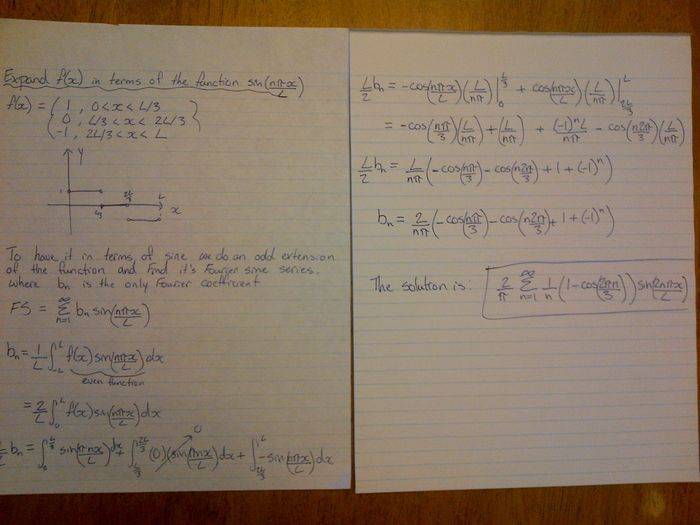 Expand f(x) in terms of the function sin(nπx/L)
f(x) = { 1 , 0<x<L/3
0 , L/3<x<2L/3 }
-1 , 2L/3<x<L
y
1
L/3 2L/3 L x
To have it in terms of sine we do an odd extension
of the function and find it's Fourier sine series.
where bn is the only Fourier coefficient
FS = ∞ Σ n=1 bn sin(nπx/L)
bn = 1/L ∫_-L^L f(x) sin(nπx/L) dx
even function
= 2/L ∫_0^L f(x) sin(nπx/L) dx
L/2 bn = ∫_0^L/3 sin(πnx/L) dx + ∫_L/3^2L/3 (0)(sin(πnx/L)) dx + ∫_2L/3^L -sin(nπx/L) dx
0
L/2 bn = -cos(nπx/L)(L/nπ)|_0^L/3 + cos(nπx/L)(L/nπ)|_2L/3^L
= -cos(nπ/3)(L/nπ) + (L/nπ) + (-1)^n L/nπ - cos(n2π/3)(L/nπ)
L/2 bn = L/nπ (-cos(nπ/3) - cos(n2π/3) + 1 + (-1)^n)
bn = 2/nπ (-cos(nπ/3) - cos(n2π/3) + 1 + (-1)^n)
The solution is: 2/π ∞ Σ n=1 1/n (1-cos(2πn/3)) sin(2nπx/L)